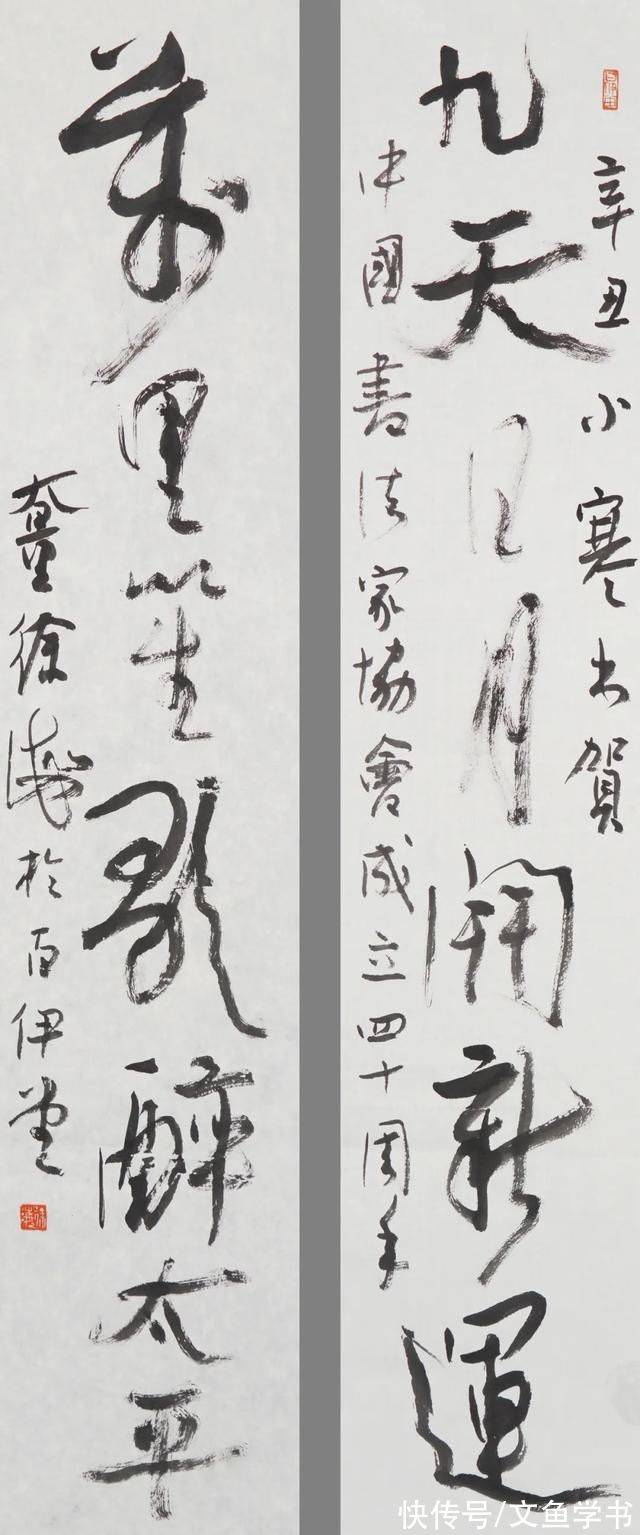 辛丑小寒书賀
九天日月開新運
中國書法家協會成立四十周年
萬里笙歌醉太平
徐海於百伊堂
快传号/文鱼学书